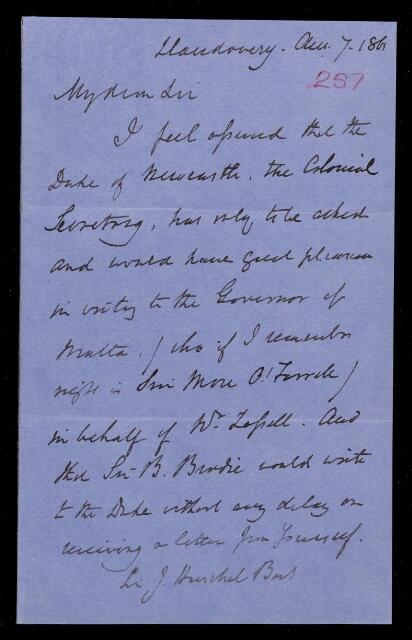 Llandovery. Aug. 7. 186
257
My dear Sir
I feel assured that the
Duke of Newcastle, the Colonial
Secretary, has only to be asked
and would have great pleasure
in writing to the Governor of
Malta. (who if I remember
right is Sir More O'Ferrall)
in behalf of Mr. Lassell. And
that Sir B. Brodie would write
to the Duke without any delay on
receiving a letter from Yourself.
Sir J. Herschel Bart